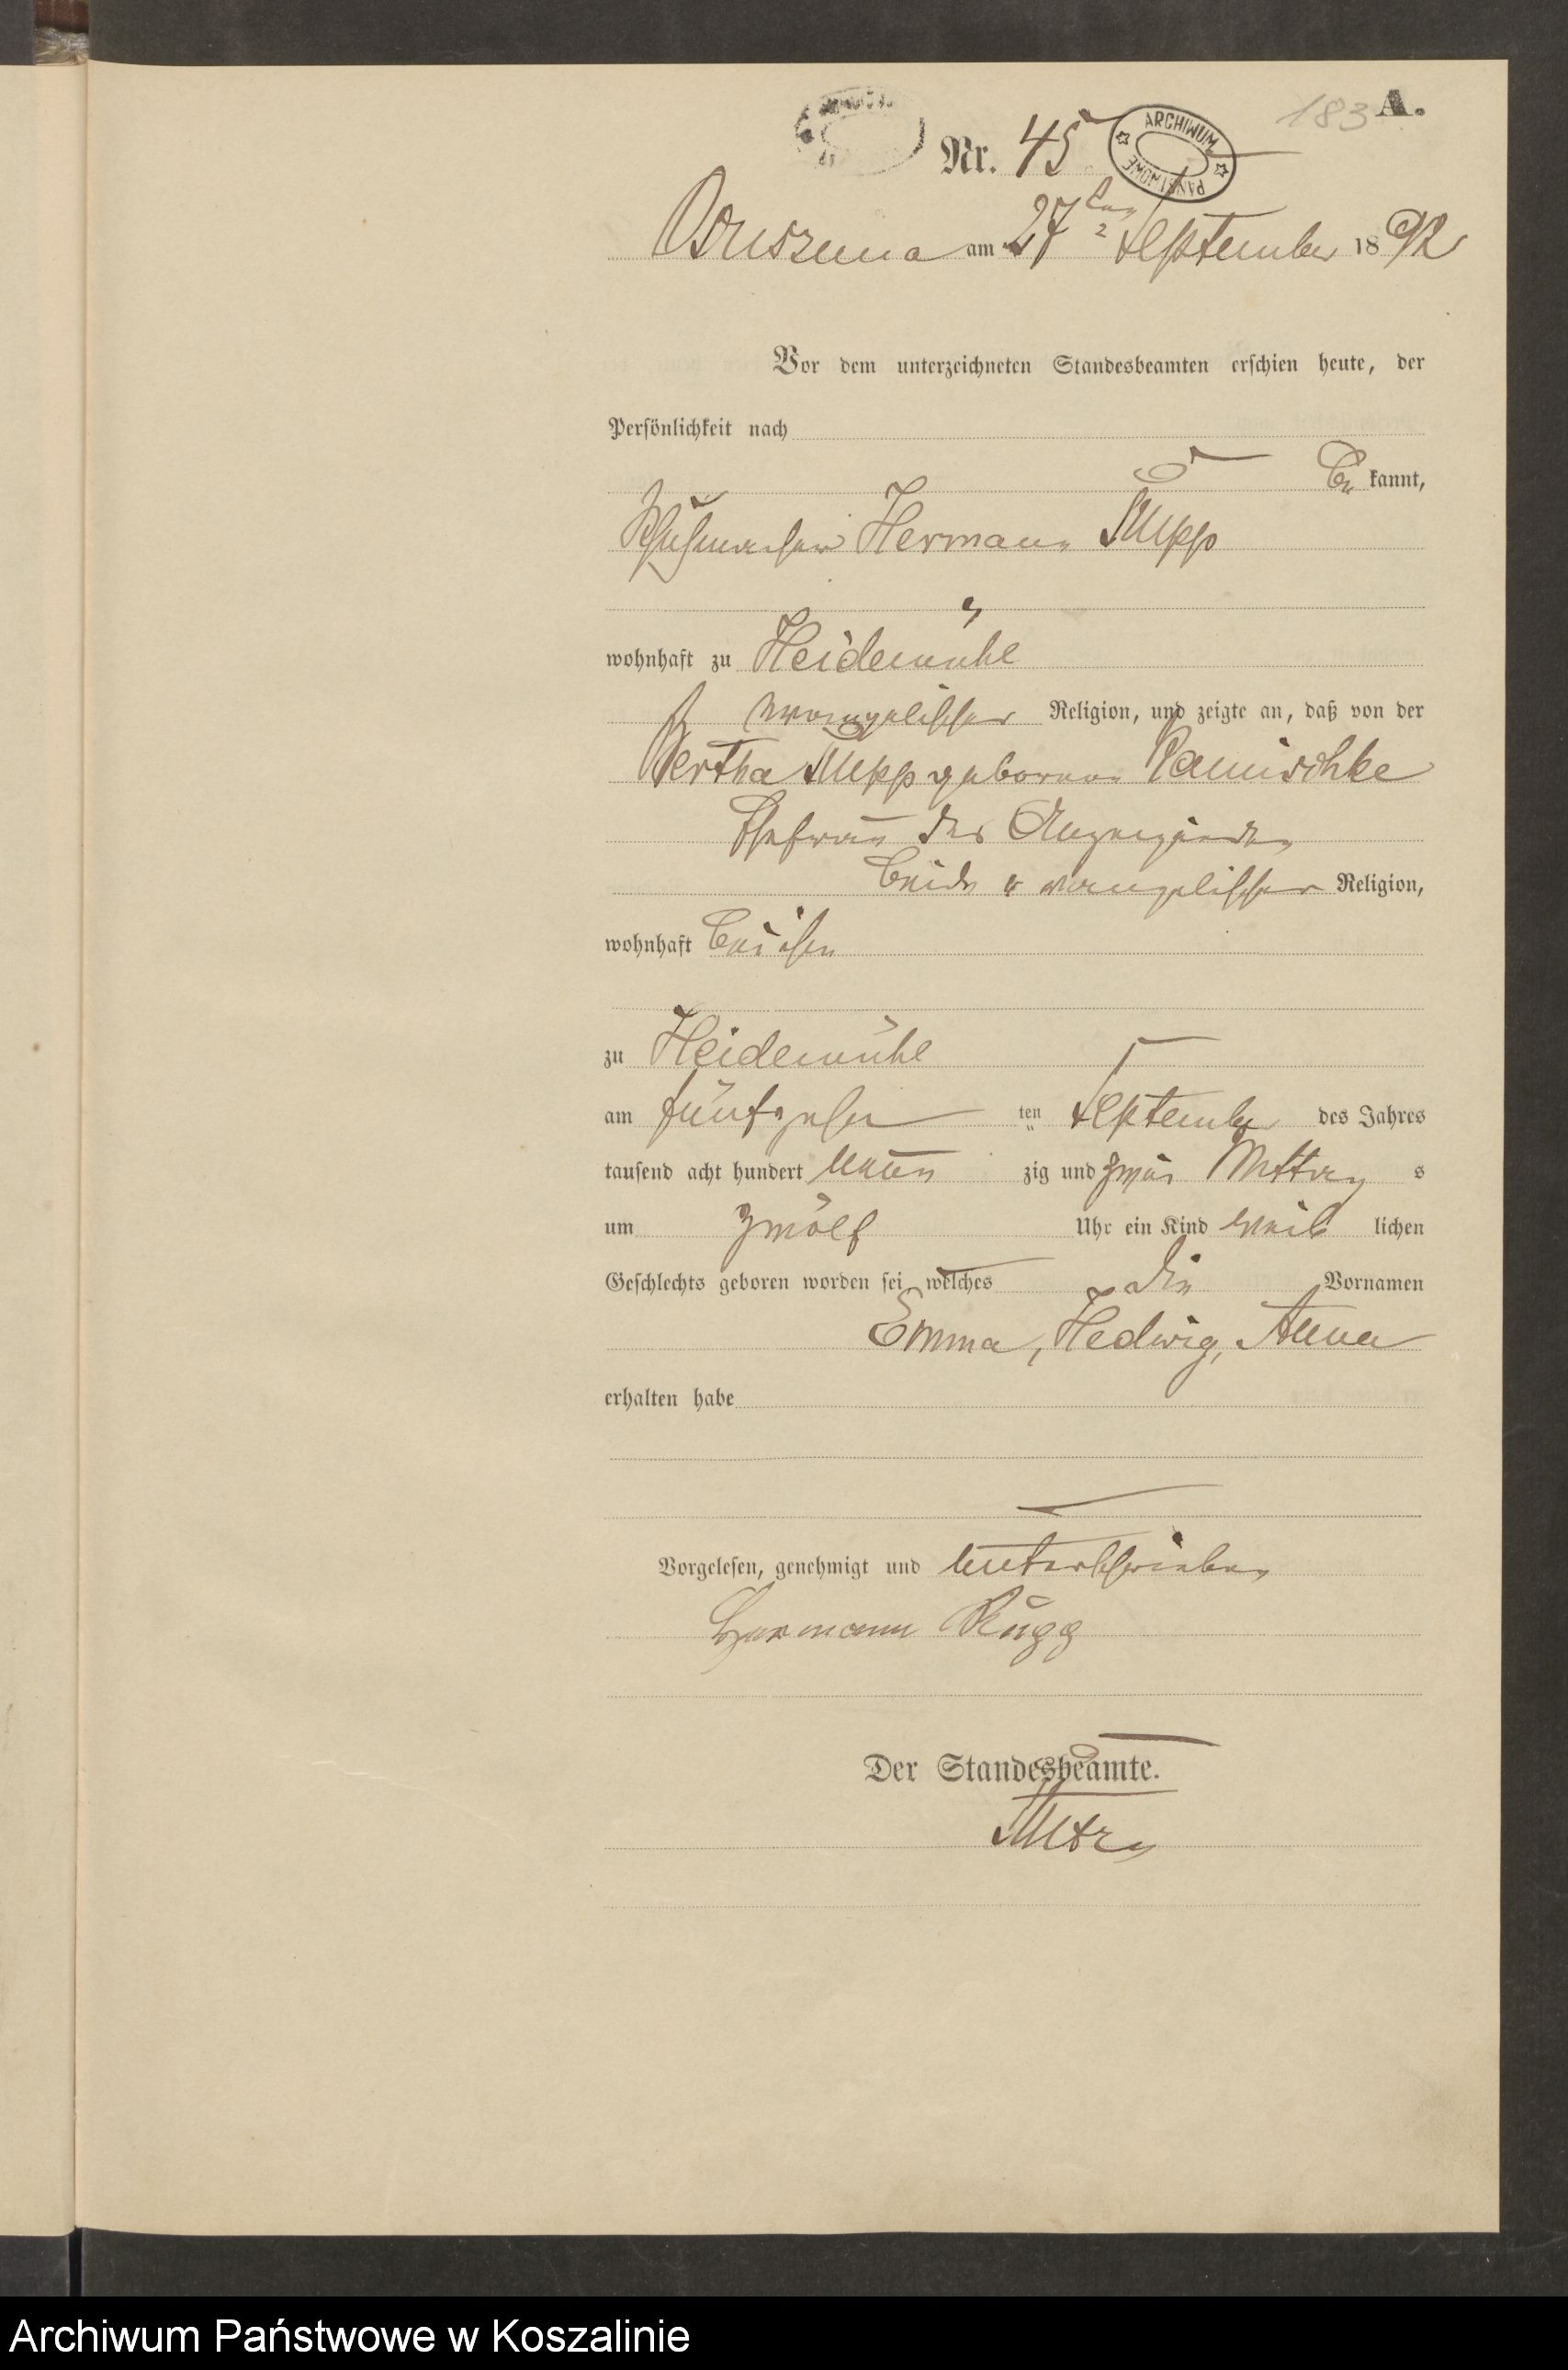 183 A.
Nr. 45
ARCHIWUM PAŃSTWOWE
am 27ten September 1892
Vor dem unterzeichneten Standesbeamten erschien heute, der
Persönlichkeit nach
be kannt,
Schuhmacher Hermann
wohnhaft zu Heidemühl
evangelischer Religion, und zeigte an, daß von der
Bertha geborenen
Ehefrau des Anzeigenden
beide evangelischer Religion,
wohnhaft bei ihm
zu Heidemühl
am fünfzehn ten September des Jahres
tausend acht hundert neun zig und zwei Mittag s
um zwölf Uhr ein Kind weib lichen
Geschlechts geboren worden sei, welches die Vornamen
Emma, Hedwig, Anna
erhalten habe
Vorgelesen, genehmigt und unterschrieben
Hermann
Der Standesbeamte.
Archiwum Państwowe w Koszalinie